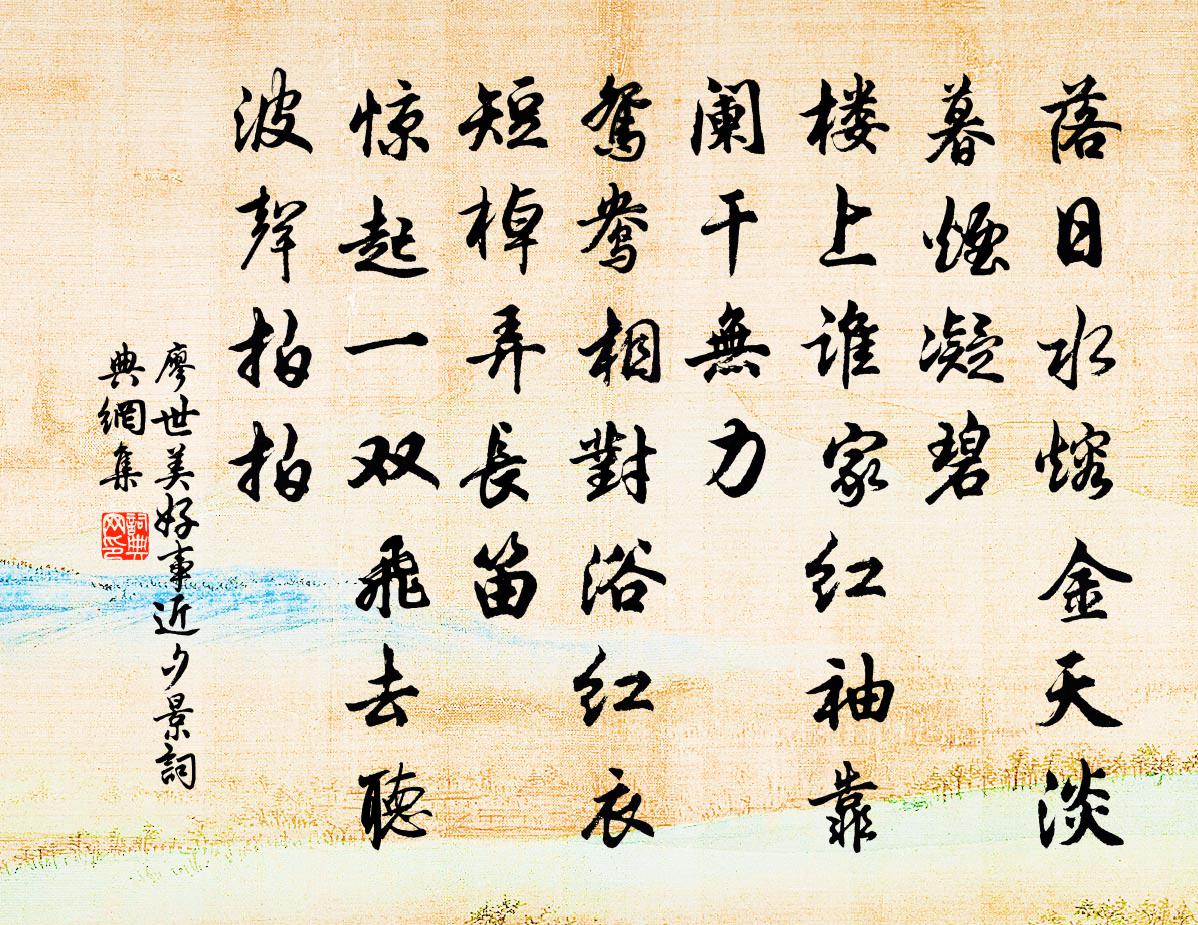 落日水熔金天淡
暮煙凝碧
楼上谁家红袖靠
阑干無力
鸳鸯相對浴红衣
短棹弄長笛
惊起一双飛去聽
波聲拍拍
廖世美好事近夕景詞
典網集
詞典网印